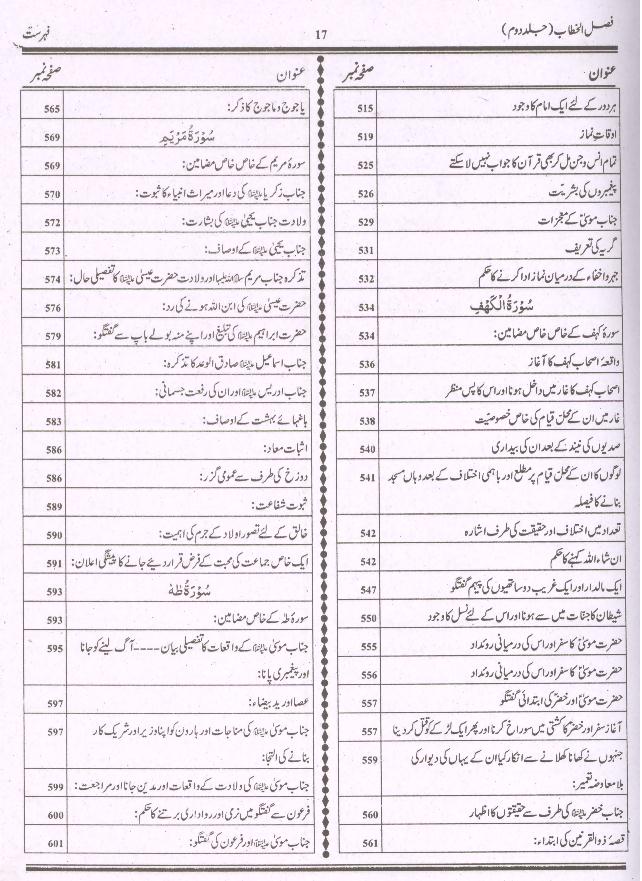 فصل الخطاب (جلد دوم)
17
فہرست
عنوان
صفحہ نمبر
ہر دور کے لئے ایک امام کا وجود 515
اوقاتِ نماز 519
تمام انس و جن مل کر بھی قرآن کا جواب نہیں لا سکتے 525
پیغمبروں کی بشریت 526
جناب موسیٰؑ کے معجزات 529
گریہ کی تعریف 531
جہر و اخفاء کے درمیان نماز ادا کرنے کا حکم 532
سُوْرَةُ الْكَهْفِ 534
سورۂ کہف کے خاص خاص مضامین: 534
واقعۂ اصحاب کہف کا آغاز 536
اصحاب کہف کا غار میں داخل ہونا اور اس کا پس منظر 537
غار میں ان کے محلِ قیام کی خاص خصوصیّت 538
صدیوں کی نیند کے بعد ان کی بیداری 540
لوگوں کا ان کے محلِ قیام پر مطلع اور باہمی اختلاف کے بعد وہاں مسجد 541
بنانے کا فیصلہ
تعداد میں اختلاف اور حقیقت کی طرف اشارہ 542
ان شاء اللہ کہنے کا حکم 542
ایک مالدار اور ایک غریب دو ساتھیوں کی پیہم گفتگو 547
شیطان کا جنات میں سے ہونا اور اس کے لئے نسل کا وجود 550
حضرت موسیٰؑ کا سفر اور اس کی درمیانی روئداد 555
حضرت موسیٰؑ کا سفر اور اس کی درمیانی روئداد 556
حضرت موسیٰؑ اور خضرؑ کی ابتدائی گفتگو 557
آغاز سفر اور خضرؑ کا کشتی میں سوراخ کرنا اور پھر ایک لڑکے کو قتل کر دینا 557
جنہوں نے کھانا کھلانے سے انکار کیا ان کے یہاں کی دیوار کی 559
بلا معاوضہ تعمیر:
جناب خضر علیہ السلام کی طرف سے حقیقتوں کا اظہار 560
قصۂ ذوالقرنین کی ابتداء: 561
عنوان
صفحہ نمبر
یاجوج و ماجوج کا ذکر: 565
سُوْرَةُ مَرْيَم 569
سورۂ مریم کے خاص خاص مضامین: 569
جناب زکریا علیہ السلام کی دعا اور میراث انبیاء کا ثبوت: 570
ولادت جناب یحییٰ علیہ السلام کی بشارت: 572
جناب یحییٰ علیہ السلام کے اوصاف: 573
تذکرہ جناب مریم سلام اللہ علیہا اور ولادت حضرت عیسیٰ علیہ السلام کا تفصیلی حال: 574
حضرت عیسیٰ علیہ السلام کی ابن اللہ ہونے کی رد: 576
حضرت ابراہیم علیہ السلام کی تبلیغ اور اپنے منہ بولے باپ سے گفتگو: 579
جناب اسماعیل علیہ السلام صادق الوعد کا تذکرہ: 581
جناب ادریس علیہ السلام اور ان کی رفعت جسمانی: 582
باغہائے بہشت کے اوصاف: 583
اثبات معاد: 586
دوزخ کی طرف سے عمومی گزر: 586
ثبوت شفاعت: 589
خالق کے لئے تصور اولاد کے جرم کی اہمیت: 590
ایک خاص جماعت کی محبت کے فرض قرار دیئے جانے کا پیشگی اعلان: 591
سُوْرَةُ طٰهٰ 593
سورۂ طہٰ کے خاص مضامین: 593
جناب موسیٰ علیہ السلام کے واقعات کا تفصیلی بیان ---- آگ لینے کو جانا 595
اور پیغمبری پانا:
عصا اور ید بیضاء: 597
جناب موسیٰ علیہ السلام کی مناجات اور ہارون کو اپنا وزیر اور شریک کار 597
بنانے کی التجا:
جناب موسیٰ علیہ السلام کی ولادت کے واقعات اور مدین جانا اور مراجعت: 599
فرعون سے گفتگو میں نرمی اور رواداری برتنے کا حکم: 600
جناب موسیٰ علیہ السلام اور فرعون کی گفتگو: 601